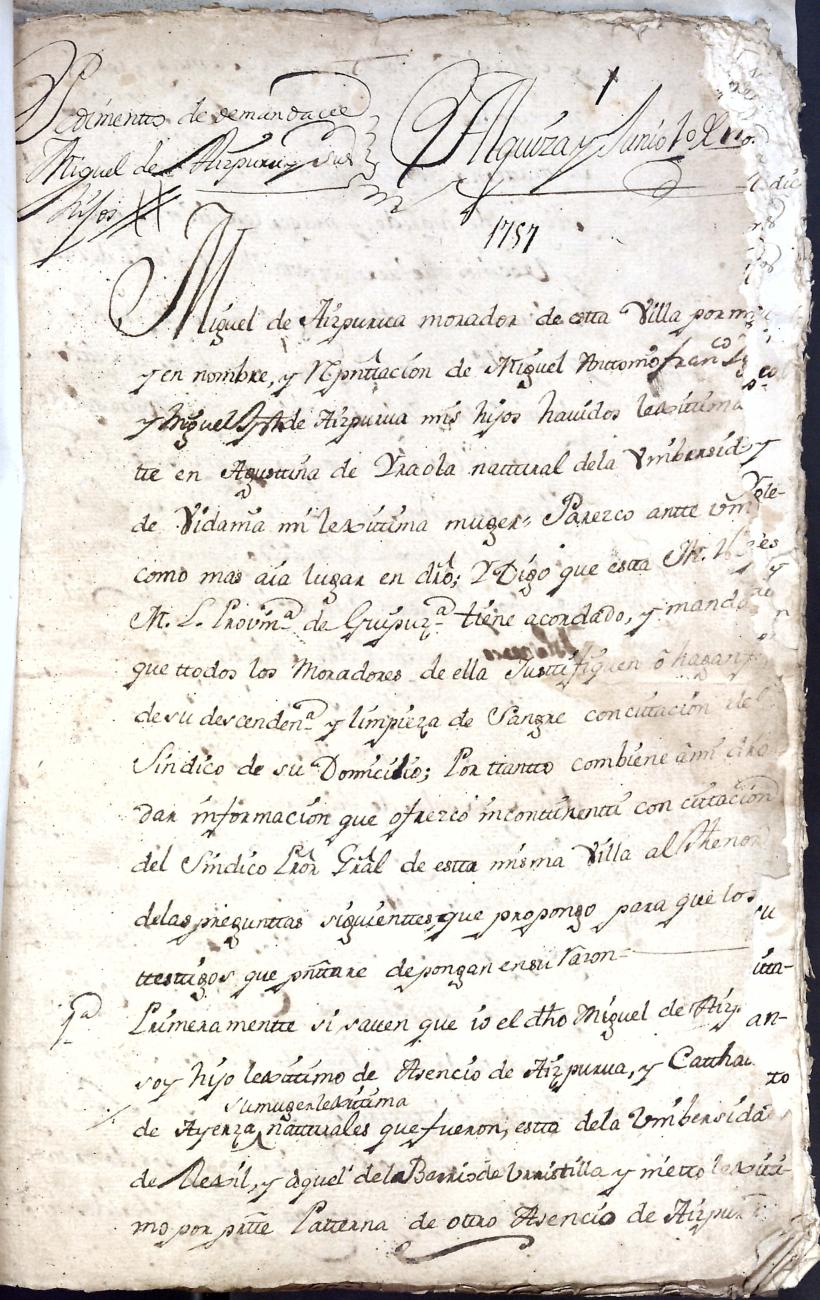 Pedimentto de demanda de
Miguel de Aizpurua y sus
hijos
Alquiza y Junio 1º
1757
Miguel de Aizpurua morador de estta Villa por mi
y en nombre, y Rpnttación de Miguel Anttonio, franco
y Miguel de Aizpurua mis hijos havidos lexitima
tte en Agusttina de Yraola nattural dela Vnibersid
de Vidania mi lexittima muger= Parezco antte vm
como mas aia lugar en dro; Y Digo que estta M. N. y
M. L. Provinª de Guipuzª tiene acordado, y manda
que ttodos los Moradores de ella Justtifiquen ô hagan
de su descendenª y limpieza de Sangre con cittación del
Sindico de su Domicilio; Por ttantto combiene â mi dro
dar información que ofrezco incontinentti con cittación
del Sindico Pror Gral de estta misma Villa al thenor
delas pregunttas siguienttes, que propongo para que los
ttesttigos que pnttare depongan en su razon
1ª Primeramentte si saven que io el dho Miguel de Aizp
soy hijo lexittimo de Asencio de Aizpurua, y Cattha
su muger lexittima
de Ayerza natturales que fueron, estta dela Vnibersidad
de Rexil, y aquel dela Barrio de Vrristilla y nietto lexitti-
mo por prtte Patterna de ottro Asencio de Aizpur